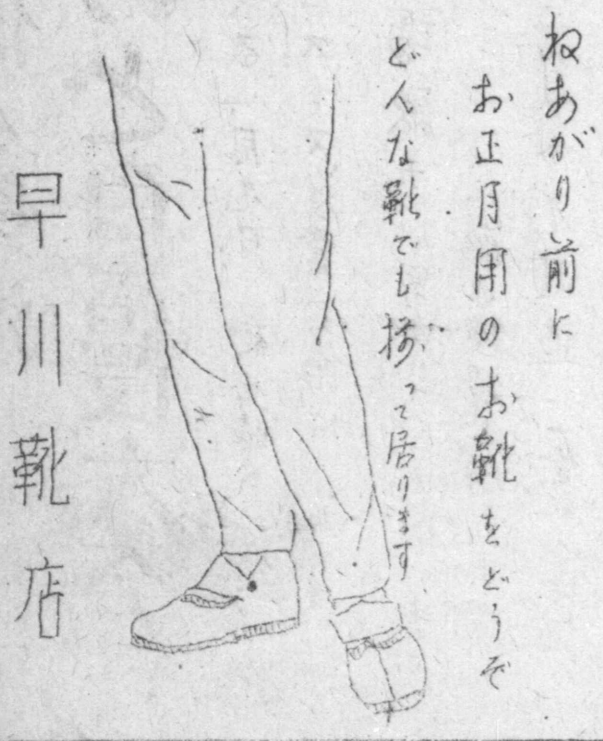 ねあがり前に
お正月用のお靴をどうぞ
どんな靴でも揃って居ります
早川靴店